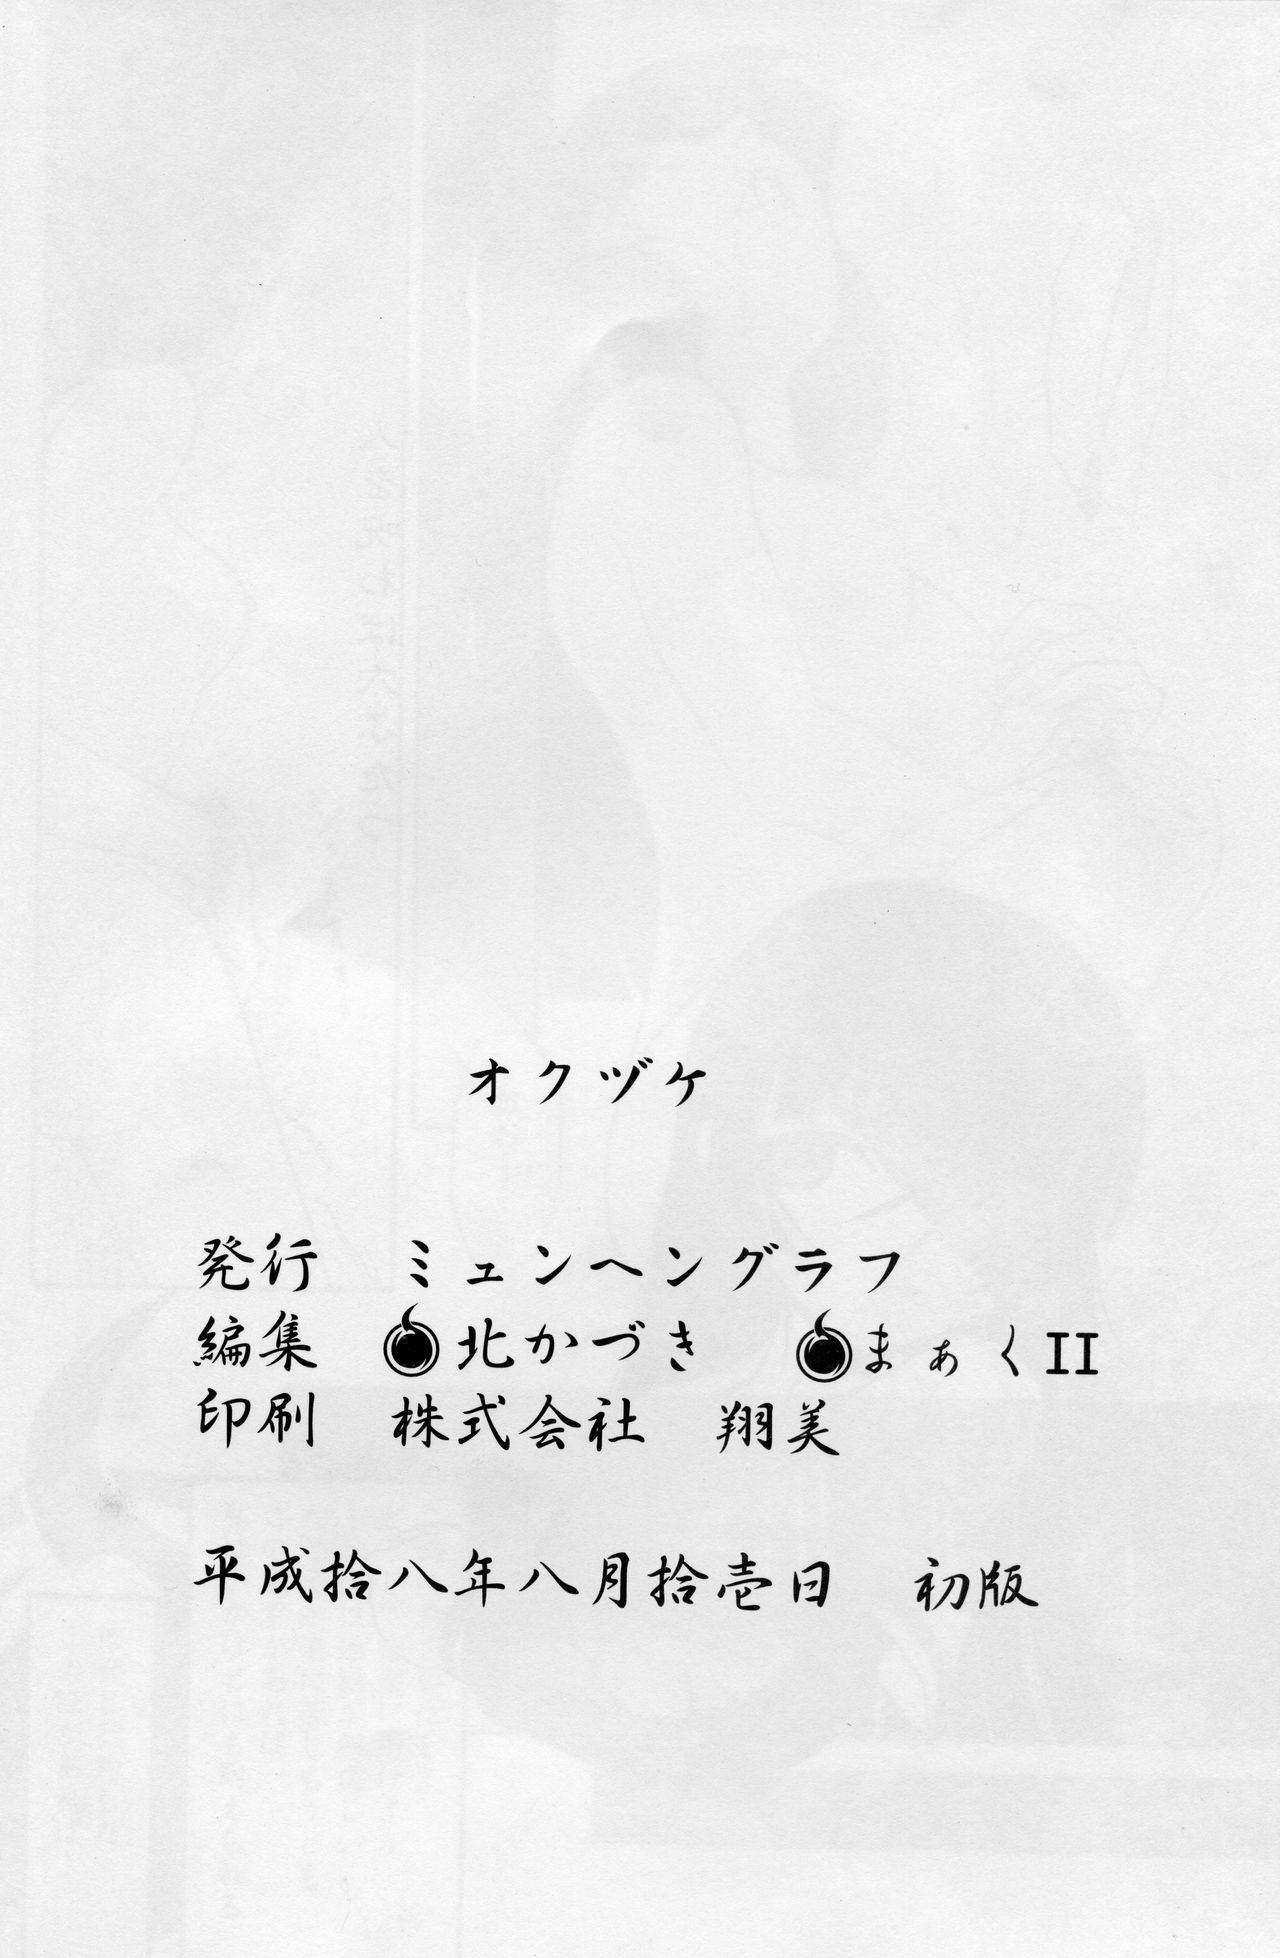 オクヅケ
発行　ミュンヘングラフ
編集　北かづき　まぁくII
印刷　株式会社　翔美
平成拾八年八月拾壱日　初版